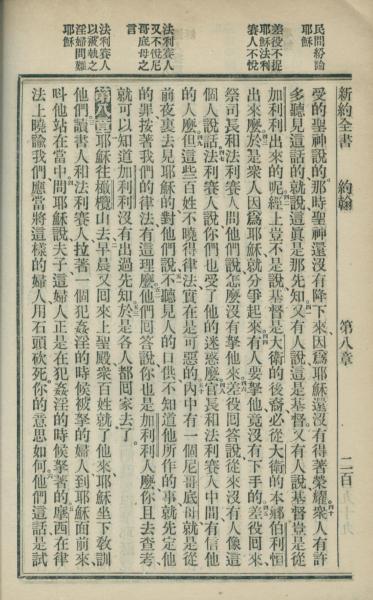 新約全書 約翰 第八章 二百
民間紛論耶穌
差役不捉耶穌法利賽人不悅
法利賽人又不悅尼哥底母之言
法利賽人以被執之淫婦問難耶穌
受的聖神說的那時聖神還沒有降下來因爲耶穌還沒有得著榮耀衆人有許
多聽見這話的就說這眞是那先知又有人說這是基督又有人說基督豈是從
加利利出來的呢經上豈不是說基督是大衛的後裔必從大衛的本鄉伯利恒
出來麼於是衆人因爲耶穌就分爭起來有人要拏他竟沒有下手的差役回來
祭司長和法利賽人問他們說怎麼沒有拏他來差役回答說從來沒有人像這
個人說話法利賽人說你們也受了他的迷惑麼官長和法利賽人中間有信他
的人麼但這些百姓不曉得律法實在是可惡的內中有一個尼哥底母就是從
前夜裏去見耶穌的對他們說不聽見人的口供不知道他所作的事就先定他
的罪按著我們的律法有這理麼他們回答說你也是加利利人麼你且去查考
就可以知道加利利沒有出過先知於是各人都回家去了
第八章耶穌往橄欖山去早晨又回來上聖殿衆百姓就了他來耶穌坐下敎訓
他們讀書人和法利賽人拉著一個犯姦淫的時候被拏的婦人到耶穌面前來
呌他站在當中間耶穌說夫子這婦人正是在犯姦淫的時候拏著的摩西在律
法上曉諭我們應當將這樣的婦人用石頭砍死你的意思如何他們這話是試